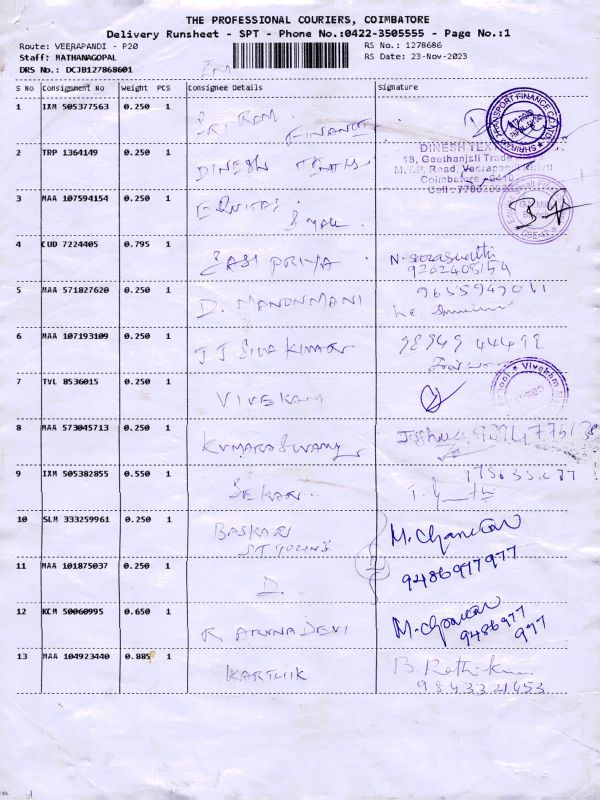 THE PROFESSIONAL COURIERS, COIMBATORE
Delivery Runsheet - SPT - Phone No.:0422-3505555 - Page No.:1
Route: VEERAPANDI - P20
RS No.: 1278686
Staff: MATHANAGOPAL
RS Date: 23-Nov-2023
DRS No.: DCJB127868601
S NO Consignment No Weight PCS Consignee Details Signature
1 IXM 505377563 0.250 1 SRI RAM FINANCE
SHRIRAM TRANSPORT FINANCE CO LTD
2 TRP 1364149 0.250 1 DINESH
DINESH TEX
18, Geethanjali Trade
M.T.P. Road, Veerapandi
Coimbatore
Cell :
3 MAA 107594154 0.250 1 EQUITAS
4 CUD 7224405 0.795 1 SASI PRIYA N. saraswathi
5 MAA 571827620 0.250 1 D. MANONMANI
6 MAA 107193109 0.250 1 JJ SIVA KUMAR 98949 44499
7 TVL 8536015 0.250 1 VIVEKAM
8 MAA 573045713 0.250 1 KUMARASWAMY
9 IXM 505382855 0.550 1 SEKAR.
10 SLM 333259961 0.250 1 BASKAR
ST JOHNS
11 MAA 101875037 0.250 1 D. 9486977977
12 KCM 50060995 0.650 1 R. ARUNA DEVI
9486977
977
13 MAA 104923440 0.885 1 KARTHIK
9843321453